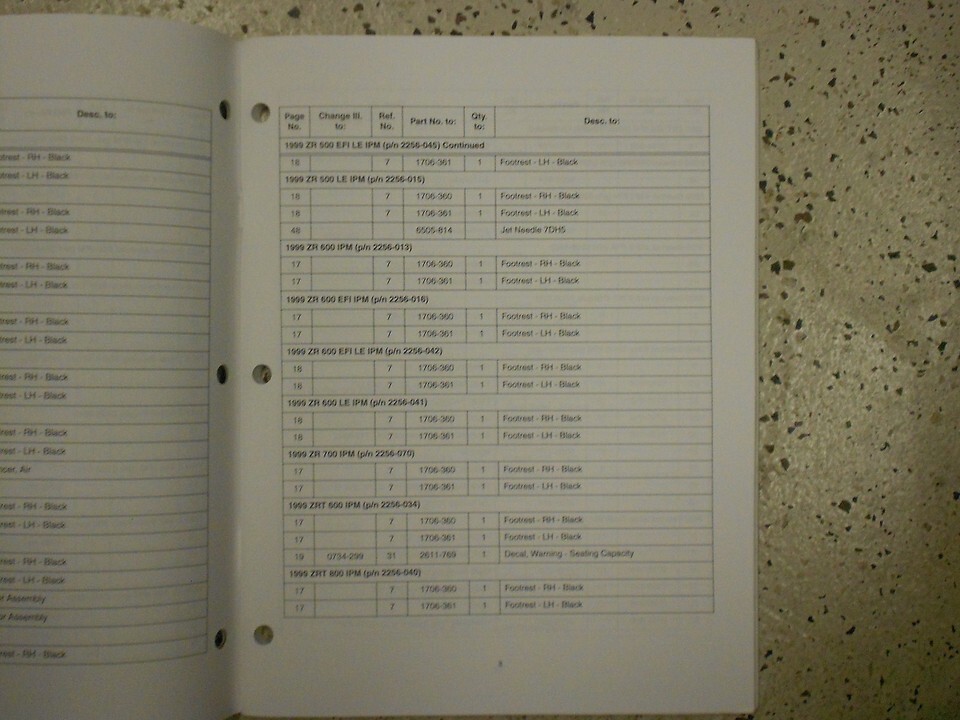 Desc. to:
- RH - Black
- LH - Black
- RH - Black
- LH - Black
- RH - Black
- LH - Black
- RH - Black
- LH - Black
- RH - Black
- LH - Black
- RH - Black
- LH - Black
Air
- RH - Black
- LH - Black
- RH - Black
- LH - Black
Assembly
Assembly
- RH - Black
Page No. Change Ill. to: Ref. No. Part No. to: Qty to: Desc. to:
1999 ZR 500 EFI LE IPM (p/n 2256-045) Continued
18 7 1706-361 1 Footrest - LH - Black
1999 ZR 500 LE IPM (p/n 2256-015)
18 7 1706-360 1 Footrest - RH - Black
18 7 1706-361 1 Footrest - LH - Black
48 6505-814 Jet Needle 7DH5
1999 ZR 600 IPM (p/n 2256-013)
17 7 1706-360 1 Footrest - RH - Black
17 7 1706-361 1 Footrest - LH - Black
1999 ZR 600 EFI IPM (p/n 2256-016)
17 7 1706-360 1 Footrest - RH - Black
17 7 1706-361 1 Footrest - LH - Black
1999 ZR 600 EFI LE IPM (p/n 2256-042)
18 7 1706-360 1 Footrest - RH - Black
18 7 1706-361 1 Footrest - LH - Black
1999 ZR 600 LE IPM (p/n 2256-041)
18 7 1706-360 1 Footrest - RH - Black
18 7 1706-361 1 Footrest - LH - Black
1999 ZR 700 IPM (p/n 2256-070)
17 7 1706-360 1 Footrest - RH - Black
17 7 1706-361 1 Footrest - LH - Black
1999 ZRT 600 IPM (p/n 2256-034)
17 7 1706-360 1 Footrest - RH - Black
17 7 1706-361 1 Footrest - LH - Black
19 0734-299 31 2611-769 1 Decal, Warning - Seating Capacity
1999 ZRT 800 IPM (p/n 2256-040)
17 7 1706-360 1 Footrest - RH - Black
17 7 1706-361 1 Footrest - LH - Black